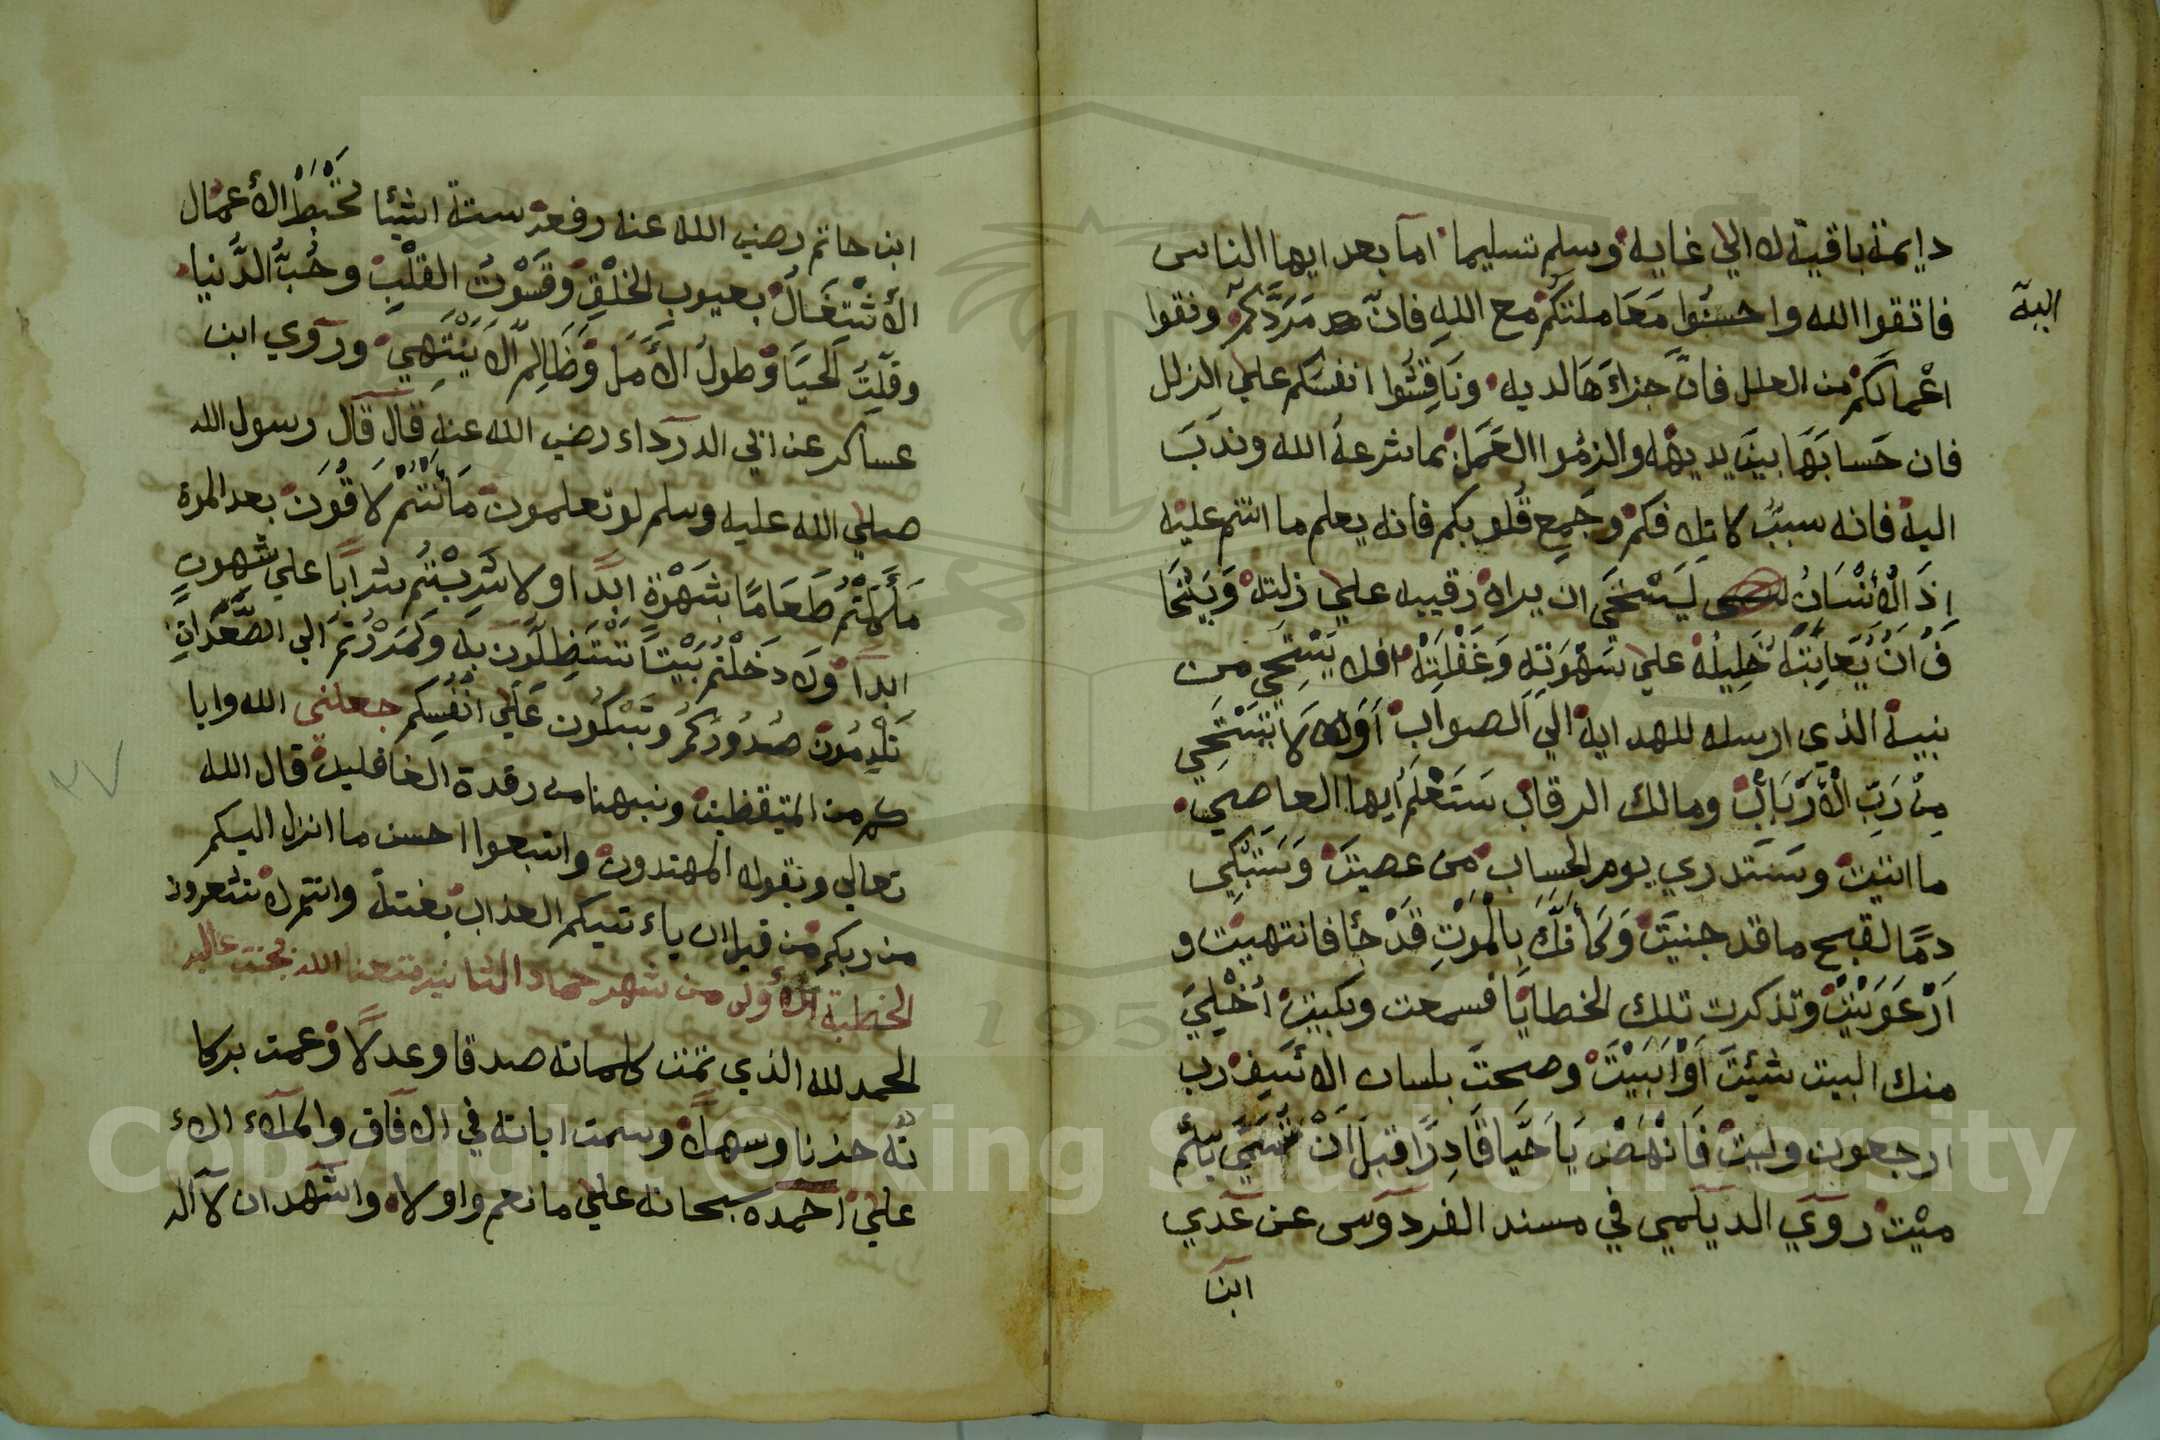 دايمة باقية لا الي غاية وسلم تسليما اما بعد ايها الناس
فاتقوا الله واحسنوا معاملتكم مع الله فان مردكم ونقوا
اليه
اعمالكم من العلل فان جزاءها لديه وناقشوا انفسكم علي الزلل
فان حسابها بين يديه والزموا العمل بما شرعه الله وندب
اليه فانه سبب لاتلافكم وجمع قلوبكم فانه يعلم ما انتم عليه
اذ الانسان ليستحى ان يراه رقيبه علي زلته ويتحا
ف ان يعاتبه خليله علي شهوته وغفلته افلا يستحي من
نبيه الذي ارسله للهداية الي الصواب اولا تستحي
من رب الارباب ومالك الرقاب ستعلم ايها العاصي
ما اتيت وستدري يوم الحساب من عصيت وستبكي
دما لقبح ما قد جنيت وكانك بالموت قد جا فانتهيت و
ارعويت وتذكرت تلك الخطايا فسمحت وبكيت اخلي
منك البيت شيت او ابيت وصحت بلسان الاسيف رب
ارجعون وليت فانهض يا حيا قادرا قبل ان تسمي باسم
ميت روي الديلمي في مسند الفردوس عن عدي
ابن
ابن حاتم رضي الله عنه رفعه ستة اشيا تحبط الاعمال
الاشتغال بعيوب الخلق وقسوت القلب وحب الدنيا
وقلت الحيا وطول الامل وظالم لا ينتهي وروي ابن
عساكر عن ابي الدرداء رضي الله عنه قال قال رسول الله
صلي الله عليه وسلم لو تعلمون ما انتم لاقون بعد الموت
ما اكلتم طعاما بشهوة ابدا ولا شربتم شرابا علي شهوت
ابدا ولا دخلتم بيتا تستظلون به ولمررتم الي الصعدات
تلدمون صدوركم وتبكون علي انفسكم جعلني الله وايا
كم من المتيقظين ونبهنا من رقدة الغافلين قال الله
تعالي وبقوله المهتدون واتبعوا احسن ما انزل اليكم
من ربكم من قبل ان ياءتيكم العذاب بغتة وانتم لا تشعرون
الخطبة الاولى من شهر جماد الثانية متعنا الله بجنت عالية
الحمد لله الذي تمت كلماته صدقا وعدلا وعمت بركا
ته حزنا وسهلا وسمت اياته في الافاق والملاء الاء
علي احمده سبحانه علي ما نعم واولاه واشهد ان لا اله